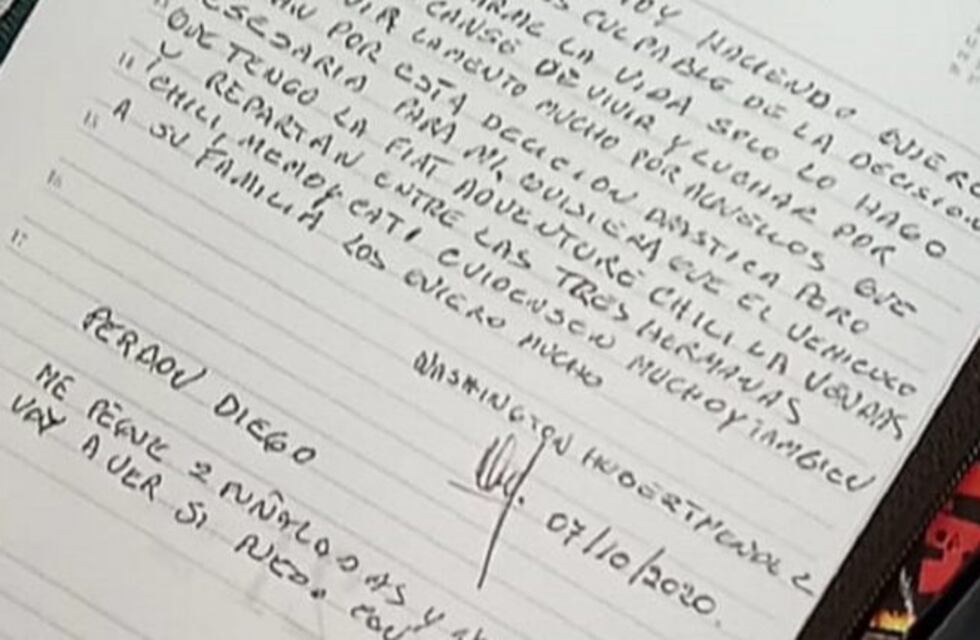 HACIENDO QUIER
CULPABLE DE LA DECISION
LA VIDA SOLO LO HAGO
CANSÉ DE VIVIR Y LUCHAR POR
LAMENTO MUCHO POR AQUELLOS QUE
POR ESTA DECICION DRASTICA PERO
ESESARIA PARA MI, QUISIERA QUE EL VEHICULO
QUE TENGO LA FIAT ADVENTURE CHILI LA VENDAS
Y REPARTAN ENTRE LAS TRES HERMANAS
CHILI, MEMO Y CATI CUIDENSEN MUCHO Y TAMBIEN
A SU FAMILIA LOS QUIERO MUCHO
WASHINGTON HUBERT
07/10/2020.
PERDON DIEGO
ME PEGUE 2 PUÑALADAS Y
VOY A VER SI PUEDO CON